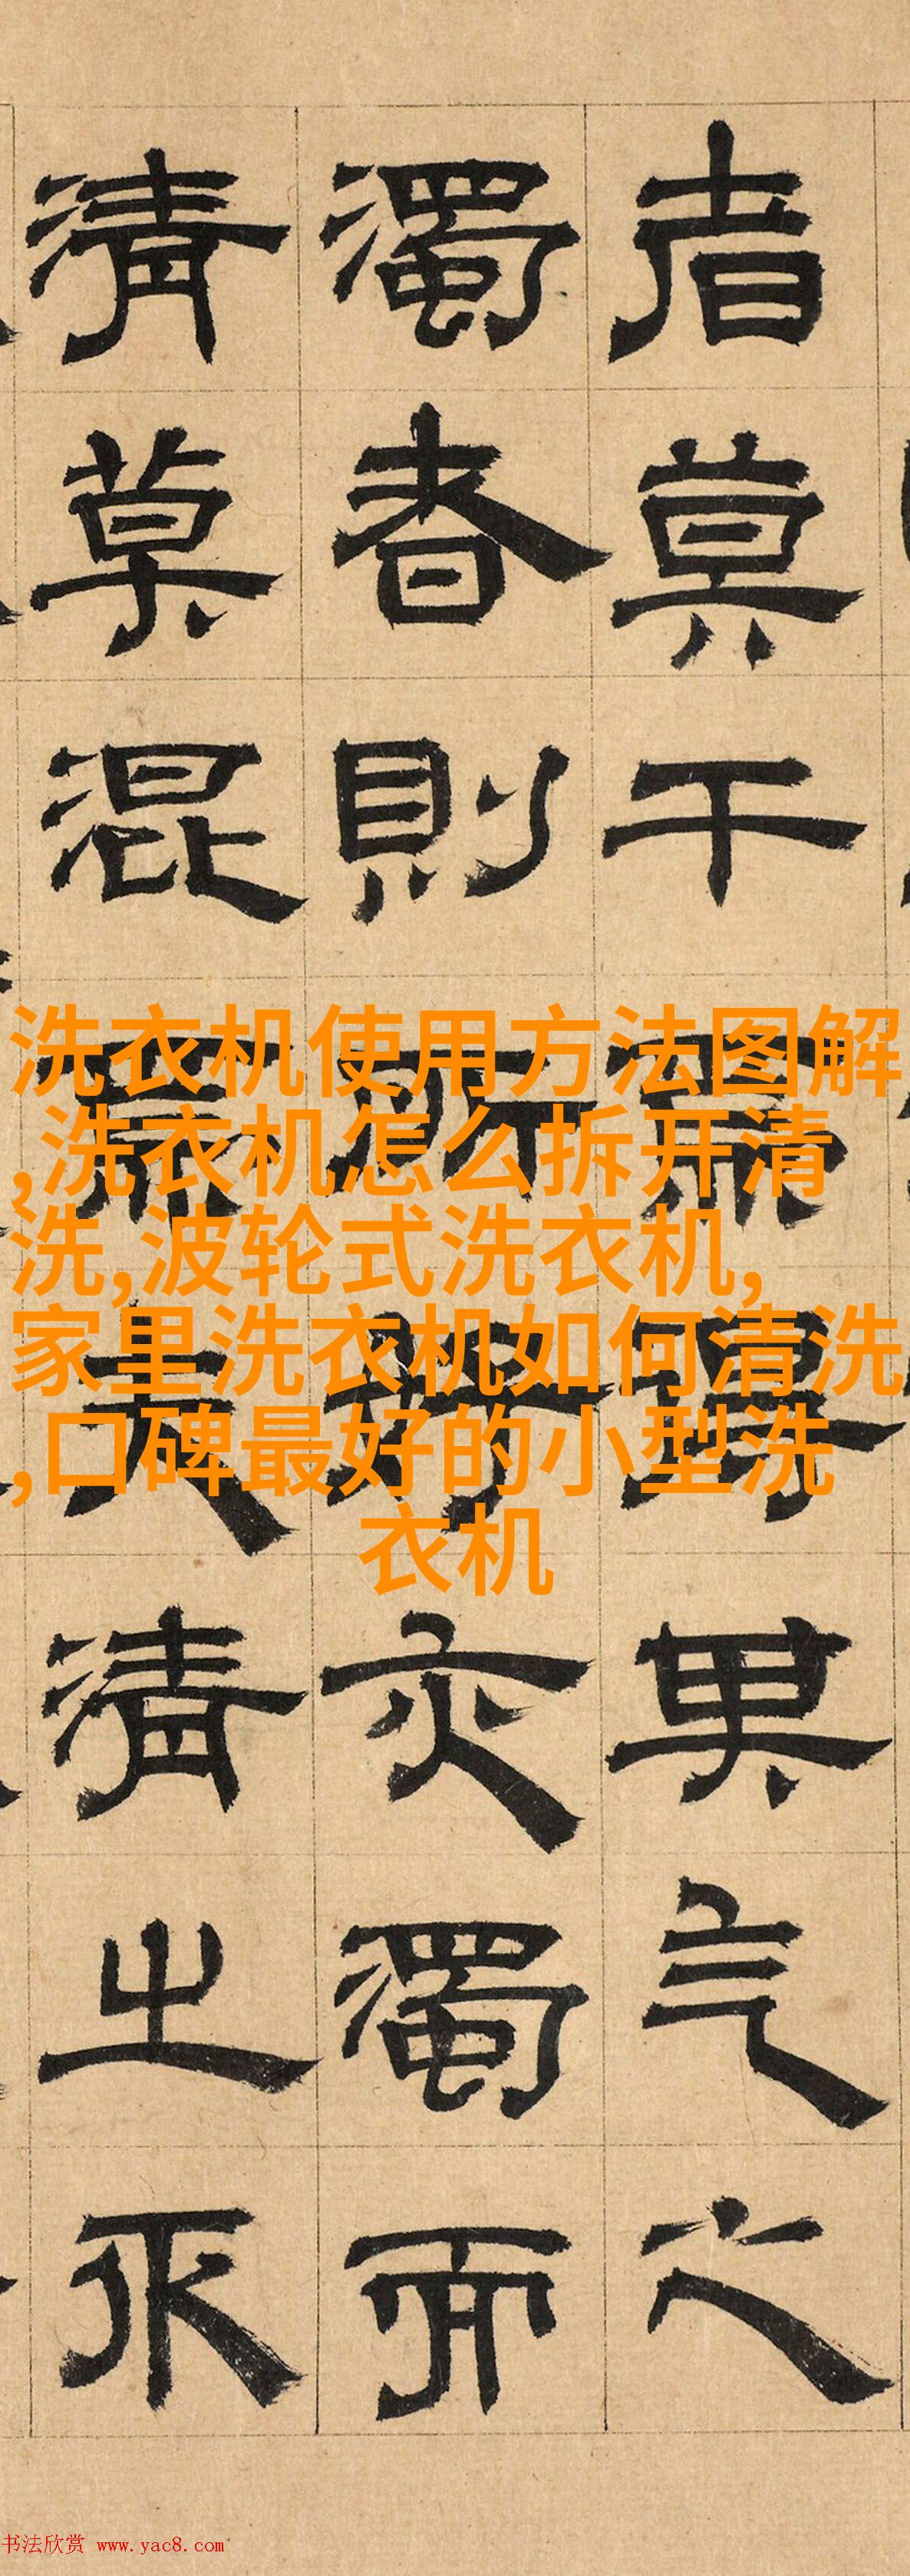 者莫干其气之
濁者則所亦濁而
清莫混夫清之
洗衣机使用方法图解
,洗衣机怎么拆开清
洗,波轮式洗衣机,
家里洗衣机如何清洗
,口碑最好的小型洗
衣机
书法欣赏 www.yac8.com